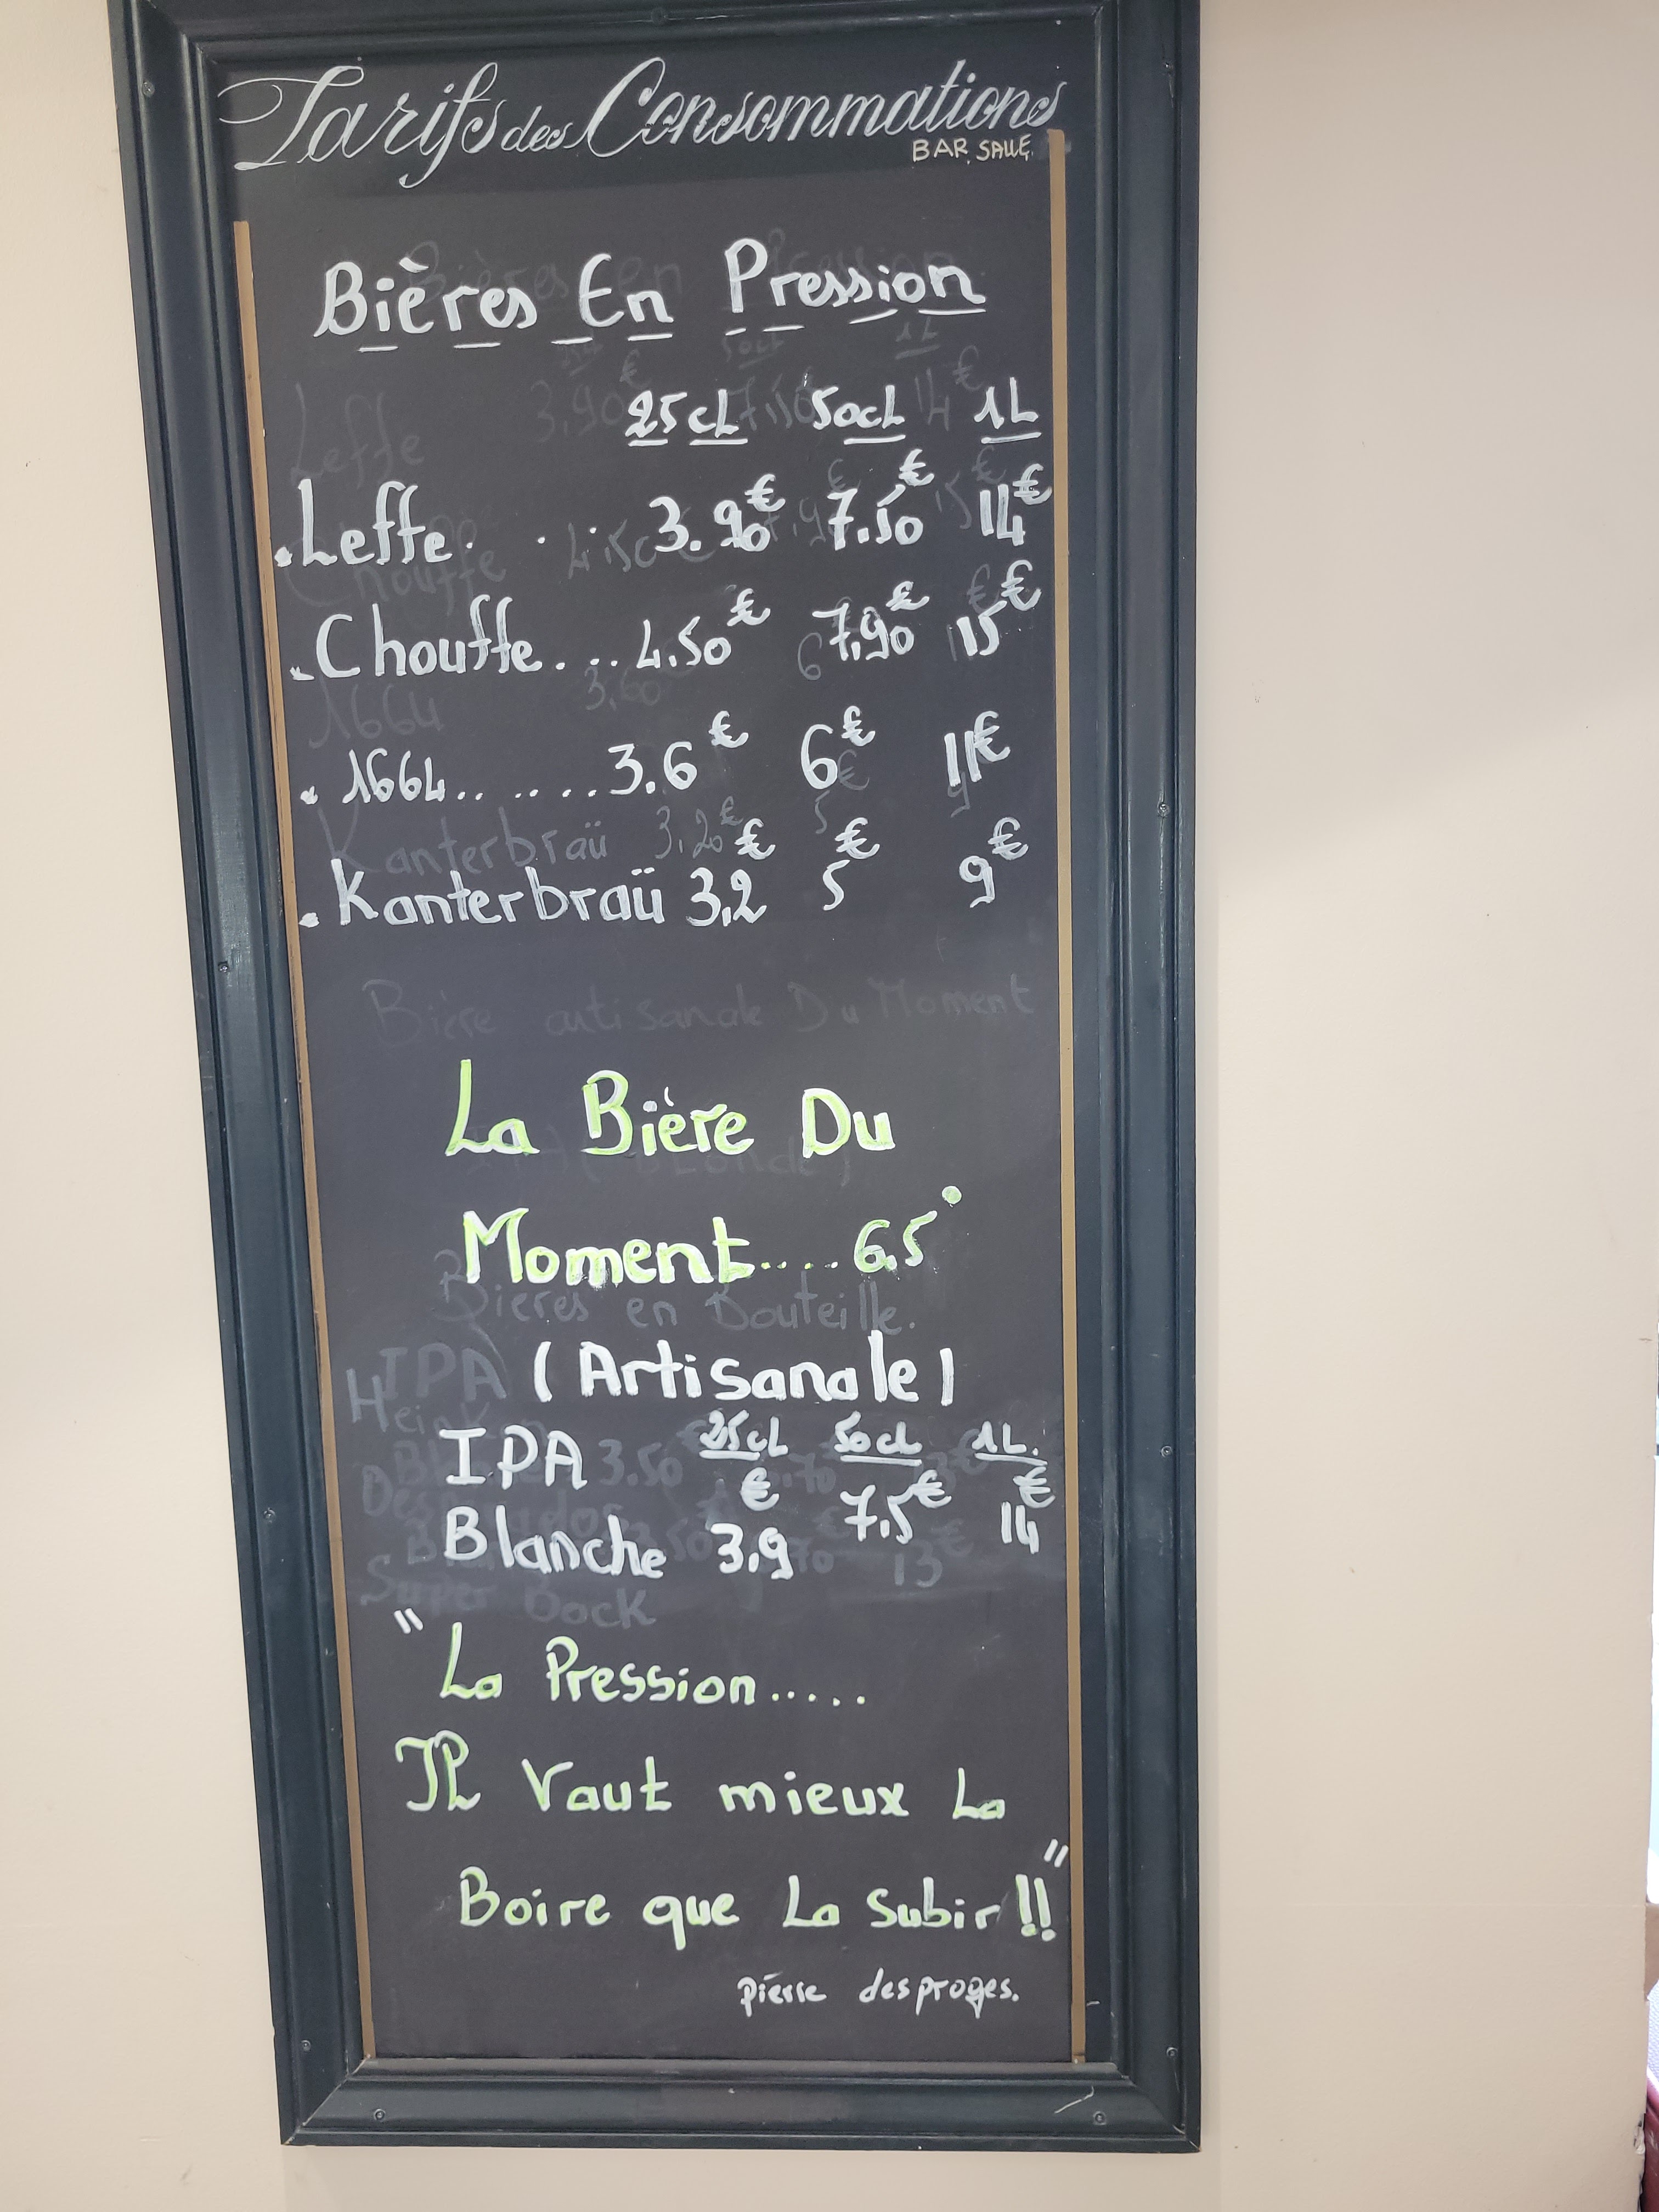 Tarifs des Consommations
BAR SALLE
Bières En Pression
25cL 50cL 1L
Leffe. . . . 3.90€ 7.50€ 14€
Chouffe.... 4.50€ 7.90€ 15€
1664........ 3.6€ 6€ 11€
Kanterbraü 3,2€ 5€ 9€
Bière artisanale Du Moment
La Bière Du
Moment.... 6.5°
Bieres en Bouteille.
IPA (Artisanale)
IPA 25cL 50cL 1L.
Blanche 3.9€ 7.5€ 14€
Super Bock
" La Pression.....
IL Vaut mieux La
Boire que La Subir !! "
pierre desproges.